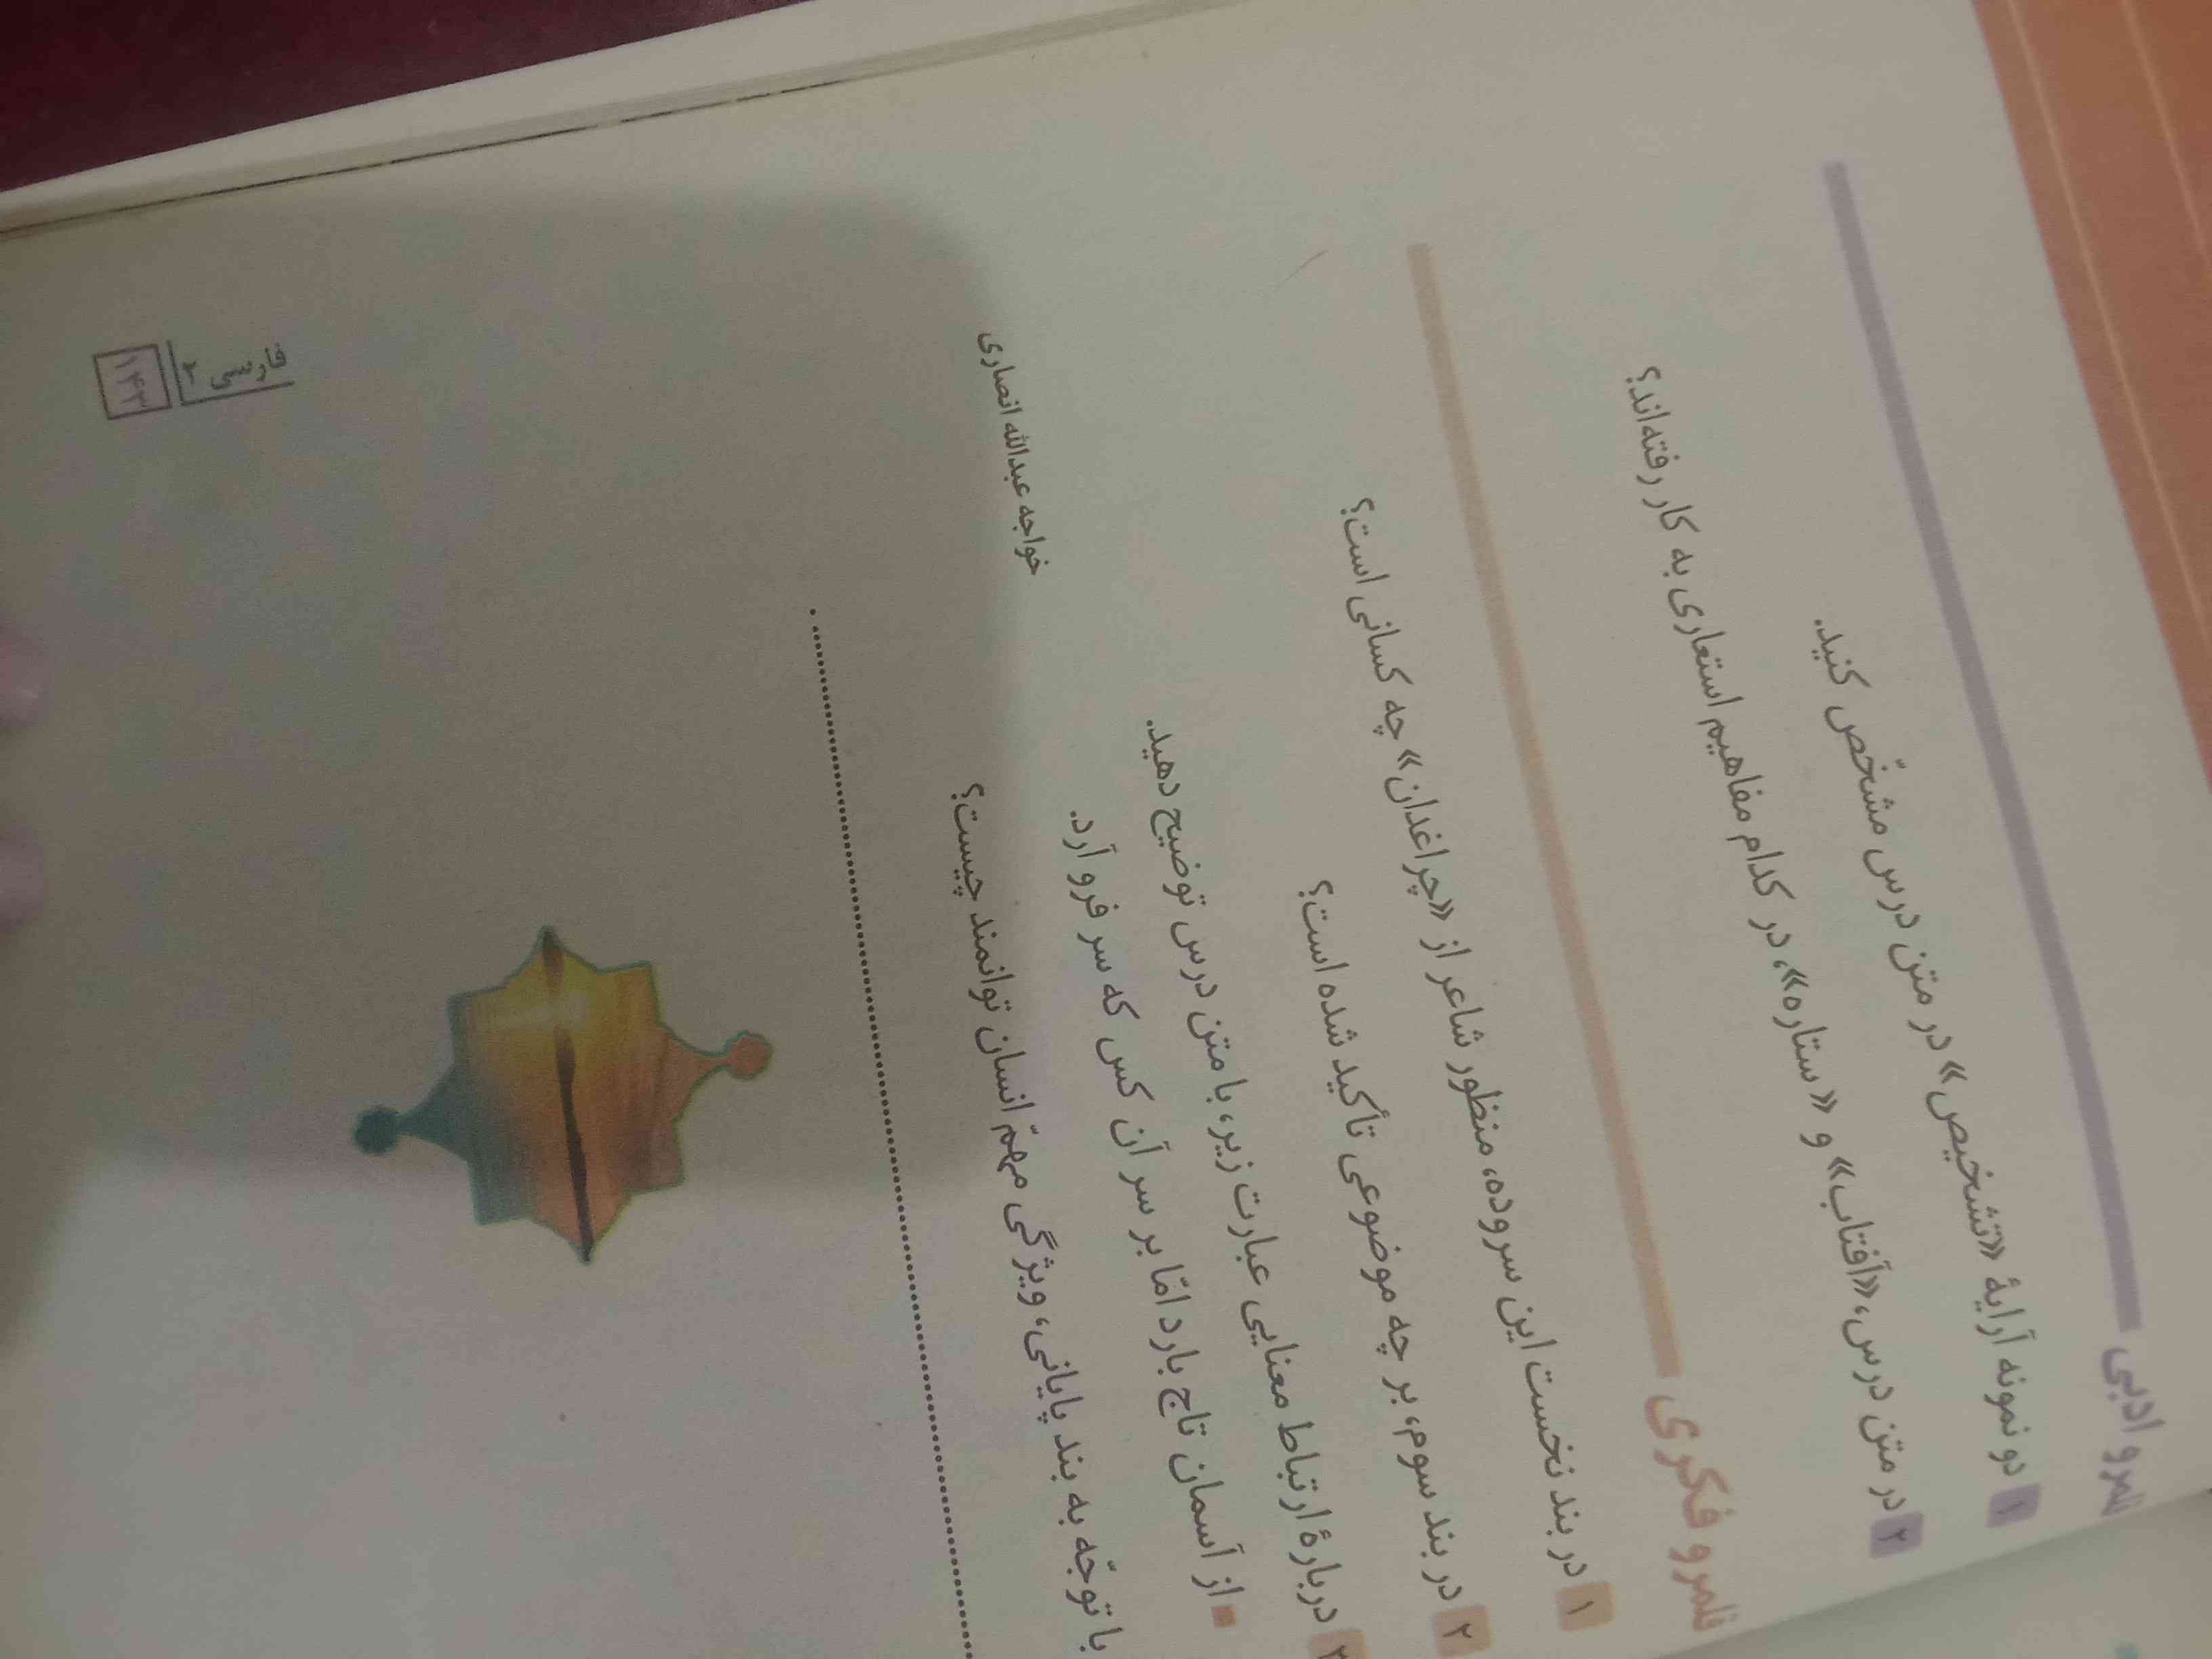 قلمرو ادبی
۱ دو نمونه آرایهٔ «تشخیص» در متن درس مشخّص کنید.
۲ در متن درس، «آفتاب» و «ستاره»، در کدام مفاهیم استعاری به کار رفته‌اند؟
قلمرو فکری
۱ در بند نخست این سروده، منظور شاعر از «چراغدان» چه کسانی است؟
۲ در بند سوم، بر چه موضوعی تأکید شده است؟
۳ دربارهٔ ارتباط معنایی عبارت زیر، با متن درس توضیح دهید.
از آسمان تاج بارد امّا بر سر آن کس که سر فرو آرد.
خواجه عبدالله انصاری
با توجّه به بند پایانی، ویژگی مهمّ انسان توانمند چیست؟
فارسی ۲
۱۴۳